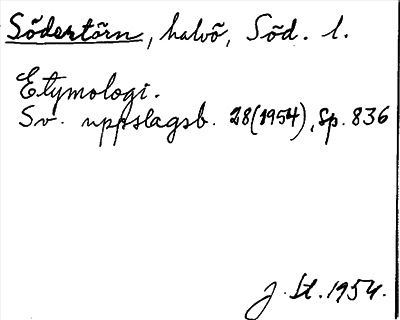 Södertörn, halvö, Söd. l.
Etymologi.
Sv. uppslagsb. 28(1954), sp. 836
J. St. 1954.